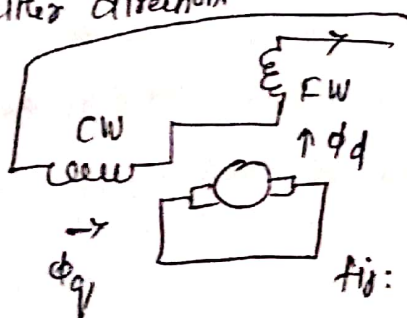 direction
CW
FW
↑ ϕd
→
ϕq
fig: